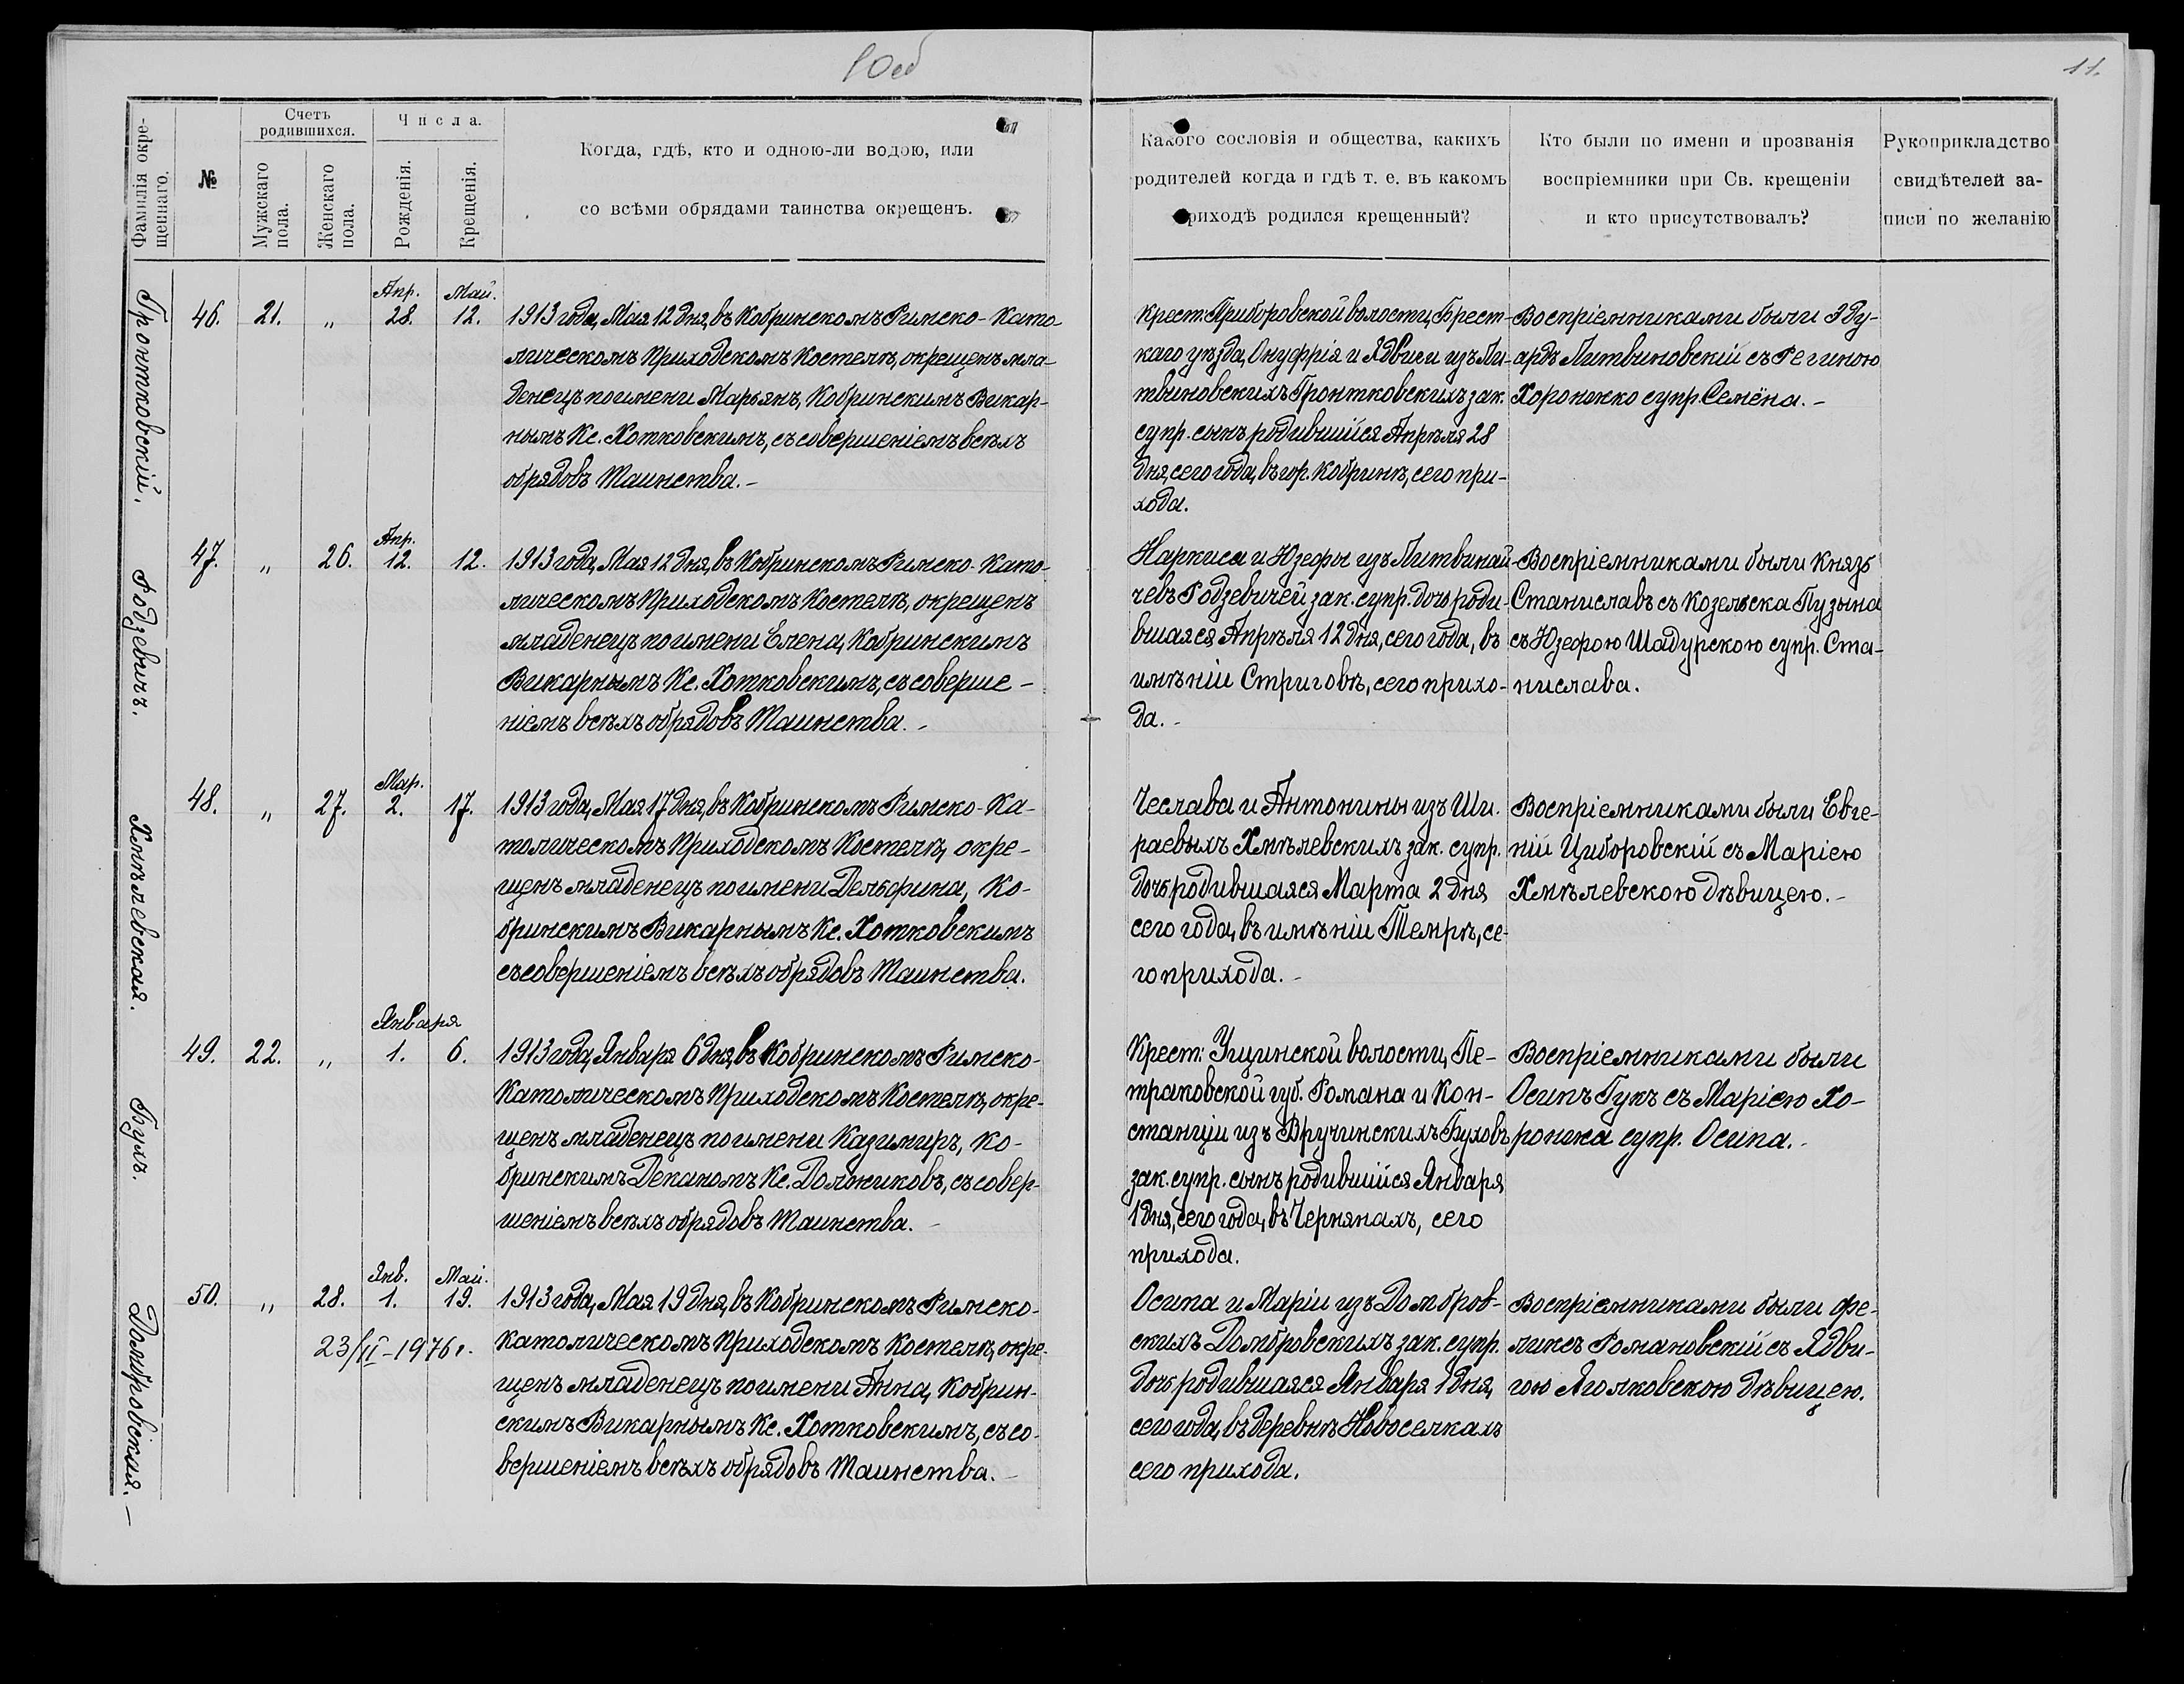 10об
11.
Фамилія окре-
щеннаго.
№
Счетъ
родившихся.
Мужскаго
пола.
Женскаго
пола.
Числа.
Рожденія.
Крещенія.
Когда, гдѣ, кто и одною-ли водою, или
со всѣми обрядами таинства окрещенъ.
Какого сословія и общества, какихъ
родителей когда и гдѣ т. е. въ какомъ
приходѣ родился крещенный?
Кто были по имени и прозванія
воспріемники при Св. крещеніи
и кто присутствовалъ?
Рукоприкладство
свидѣтелей за-
писи по желанію
Гронтковскій.
46. 21. „ Апр. 28. Май. 12.
1913 года, Мая 12 дня, въ Кобринскомъ Римско-Като-
лическомъ Приходскомъ Костелѣ, окрещенъ мла-
денецъ по имени Марьянъ, Кобринскимъ Викар-
нымъ Кс. Хотковскимъ, съ совершеніемъ всѣхъ
обрядовъ Таинства.-
Крест: Приборовской волости, Брест-
каго уѣзда, Онуфрія и Ядвиги изъ Ли-
твиновскихъ Гронтковскихъ зак.
супр. сынъ родившійся Апрѣля 28
дня, сего года, въ гор. Кобринѣ, сего при-
хода.
Воспріемниками были Эду-
ардъ Литвиновскій съ Региною
Хоронжко супр. Семёна.-
Родзевичъ.
47. „ 26. Апр. 12. 12.
1913 года, Мая 12 дня, въ Кобринскомъ Римско-Като-
лическомъ Приходскомъ Костелѣ, окрещенъ
младенецъ по имени Елена, Кобринскимъ
Викарнымъ Кс. Хотковскимъ, съ соверше-
ніемъ всѣхъ обрядовъ Таинства.-
Наркиса и Юзефы изъ Литвинай-
чевъ Родзевичей зак. супр. дочь роди-
вшаяся Апрѣля 12 дня, сего года, въ
имѣніи Стриговѣ, сего прихо-
да.-
Воспріемниками были Князь
Станиславъ съ Козельска Пузына
съ Юзефою Шадурскою супр. Ста-
нислава.
Хмѣлевская.
48. „ 27. Мар. 2. 17.
1913 года, Мая 17 дня, въ Кобринскомъ Римско-Ка-
толическомъ Приходскомъ Костелѣ, окре-
щенъ младенецъ по имени Дельфина, Ко-
бринскимъ Викарнымъ Кс. Хотковскимъ
съ совершеніемъ всѣхъ обрядовъ Таинства.
Чеслава и Антонины изъ Ши-
раевыхъ Хмѣлевскихъ зак. супр.
дочь родившаяся Марта 2 дня
сего года, въ имѣніи Темрѣ, се-
го прихода.-
Воспріемниками были Евге-
ній Циборовскій съ Маріею
Хмѣлевскою дѣвицею.-
Бухъ.
49. 22. „ Января 1. 6.
1913 года, Января 6 дня, въ Кобринскомъ Римско-
Католическомъ Приходскомъ Костелѣ, окре-
щенъ младенецъ по имени Казимиръ, Ко-
бринскимъ Деканомъ Кс. Должниковъ, съ совер-
шеніемъ всѣхъ обрядовъ Таинства.-
Крест: Ущинской волости, Пе-
траковской губ. Романа и Кон-
станціи изъ Вручинскихъ Буховъ
зак. супр. сынъ родившійся Января
1 дня, сего года, въ Чернянахъ, сего
прихода.
Воспріемниками были
Осипъ Гукъ съ Маріею Хо-
ронжа супр. Осипа.-
Домбровская.-
50. „ 28. Янв. 1. Май. 19.
23/II-1976г.
1913 года, Мая 19 дня, въ Кобринскомъ Римско-
Католическомъ Приходскомъ Костелѣ, окре-
щенъ младенецъ по имени Анна, Кобрин-
скимъ Викарнымъ Кс. Хотковскимъ, съ со-
вершеніемъ всѣхъ обрядовъ Таинства.-
Осипа и Маріи изъ Домбров-
скихъ Домбровскихъ зак. супр.
дочь родившаяся Января 1 дня,
сего года, въ деревнѣ Новоселкахъ
сего прихода.
Воспріемниками были Фе-
ликсъ Романовскій съ Ядви-
гою Яголковскою дѣвицею.